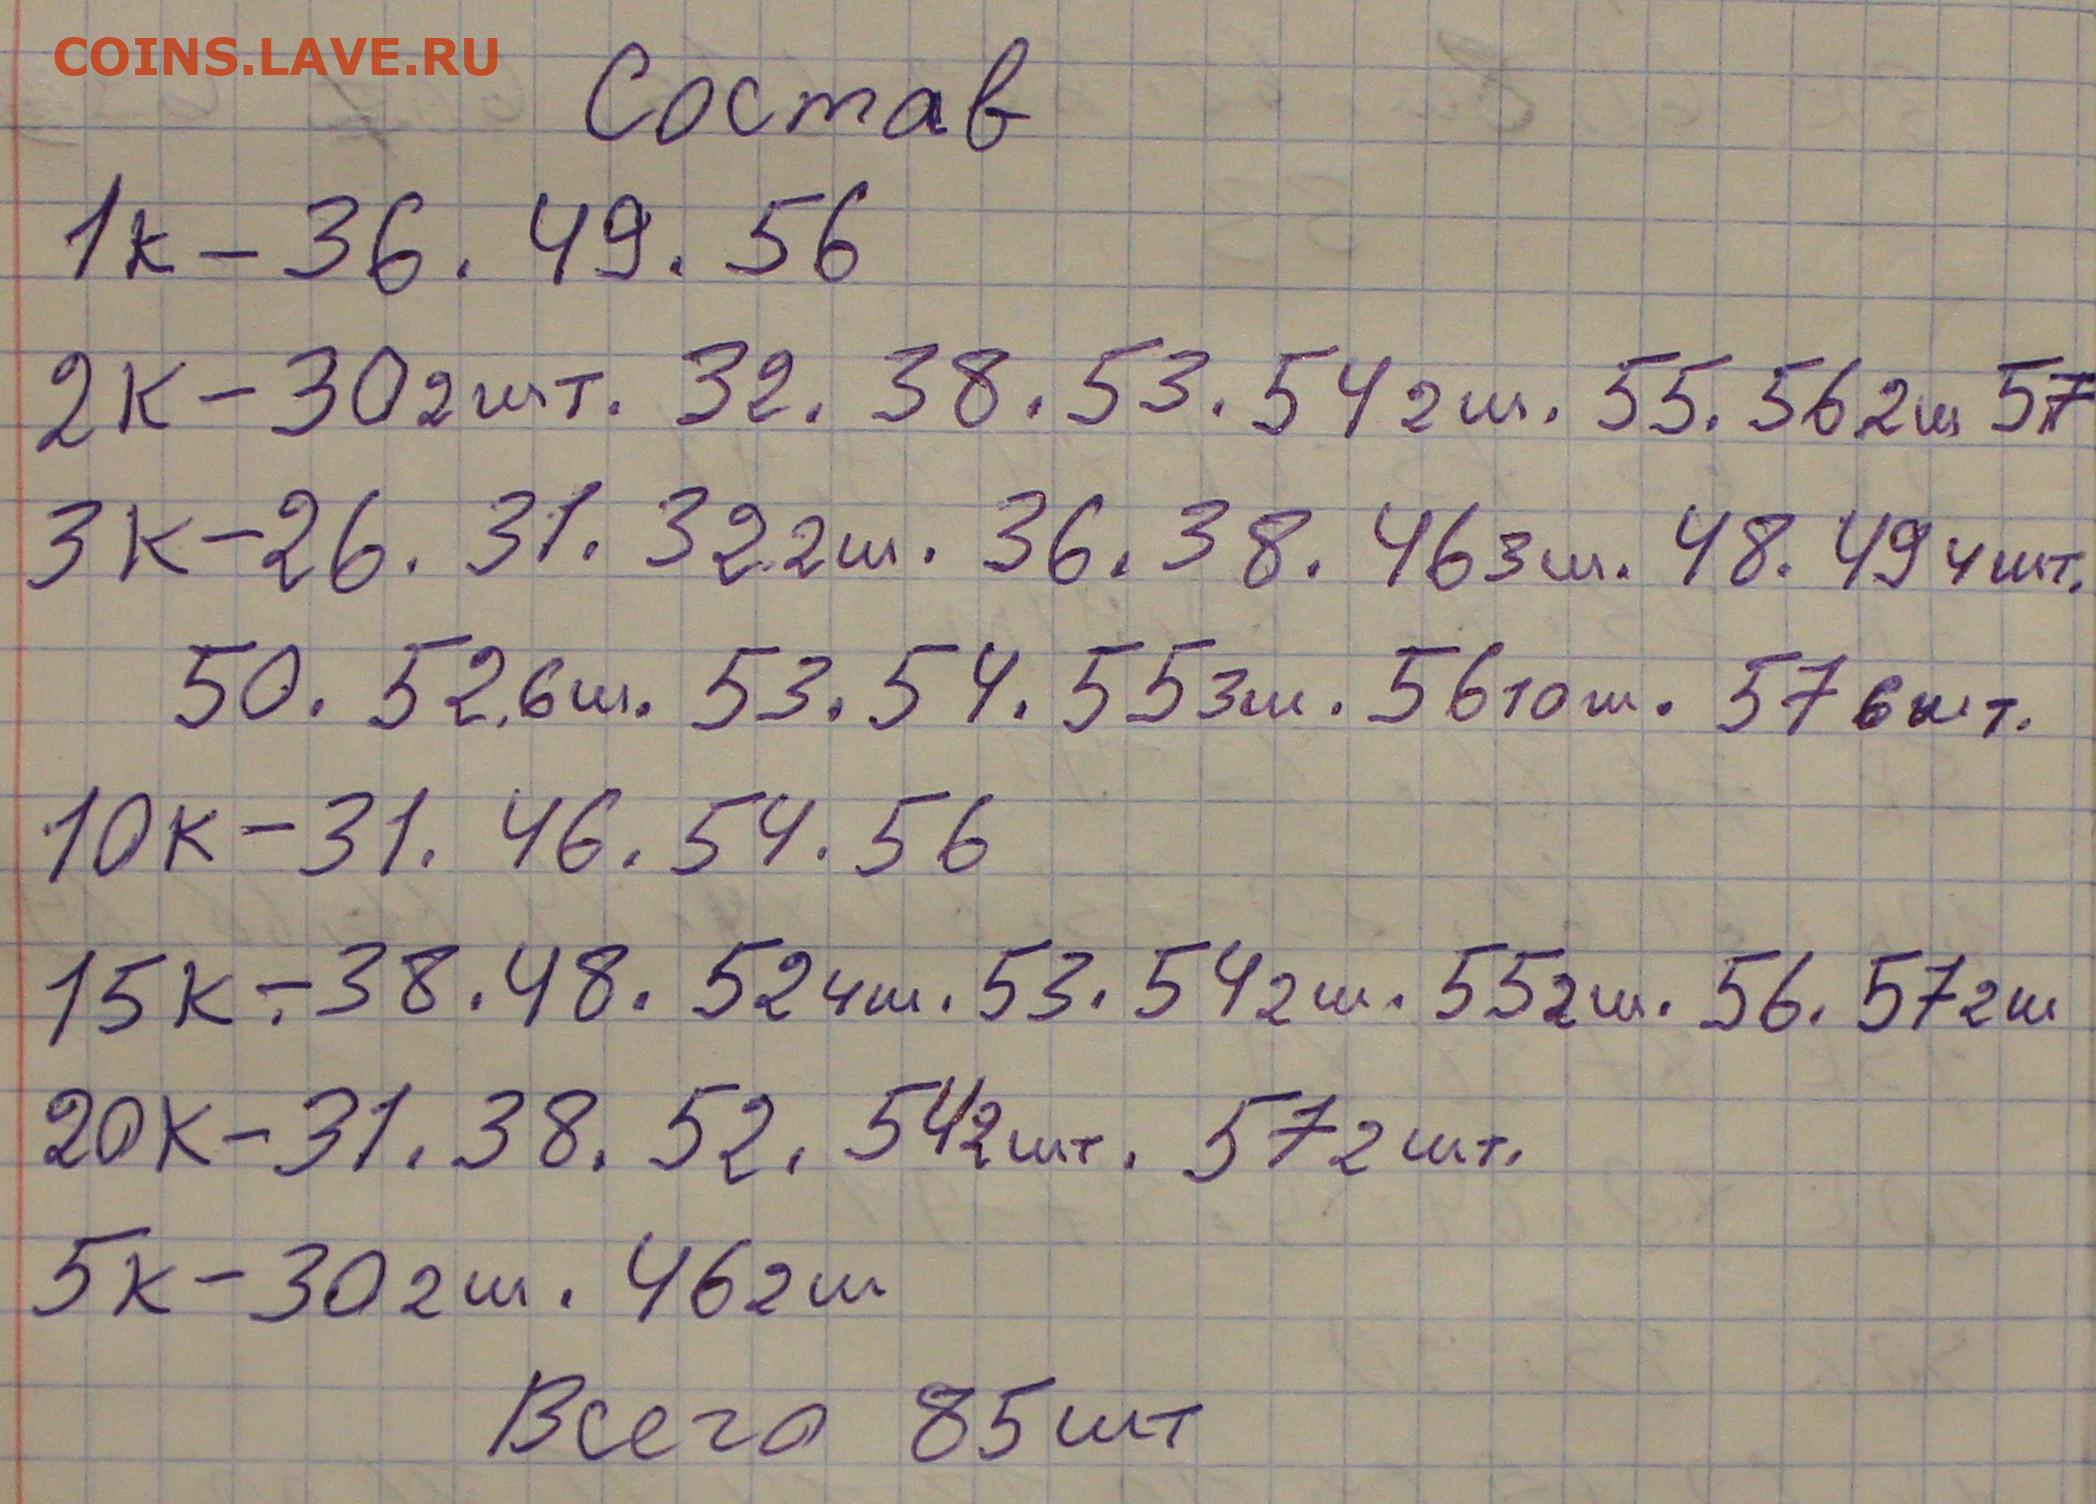 COINS.LAVE.RU
Состав
1к - 36. 49. 56
2к - 30 2шт. 32. 38. 53. 54 2ш. 55. 56 2ш 57
3к - 26. 31. 32. 2ш. 36. 38. 46 3ш. 48. 49 4шт.
50. 52. 6ш. 53. 54. 55 3ш. 56 10ш. 57 6шт.
10к - 31. 46. 54. 56
15к - 38. 48. 52 4ш. 53. 54 2ш. 55 2ш. 56. 57 2ш
20к - 31. 38. 52. 54 2шт. 57 2шт.
5к - 30 2ш. 46 2ш
Всего 85шт